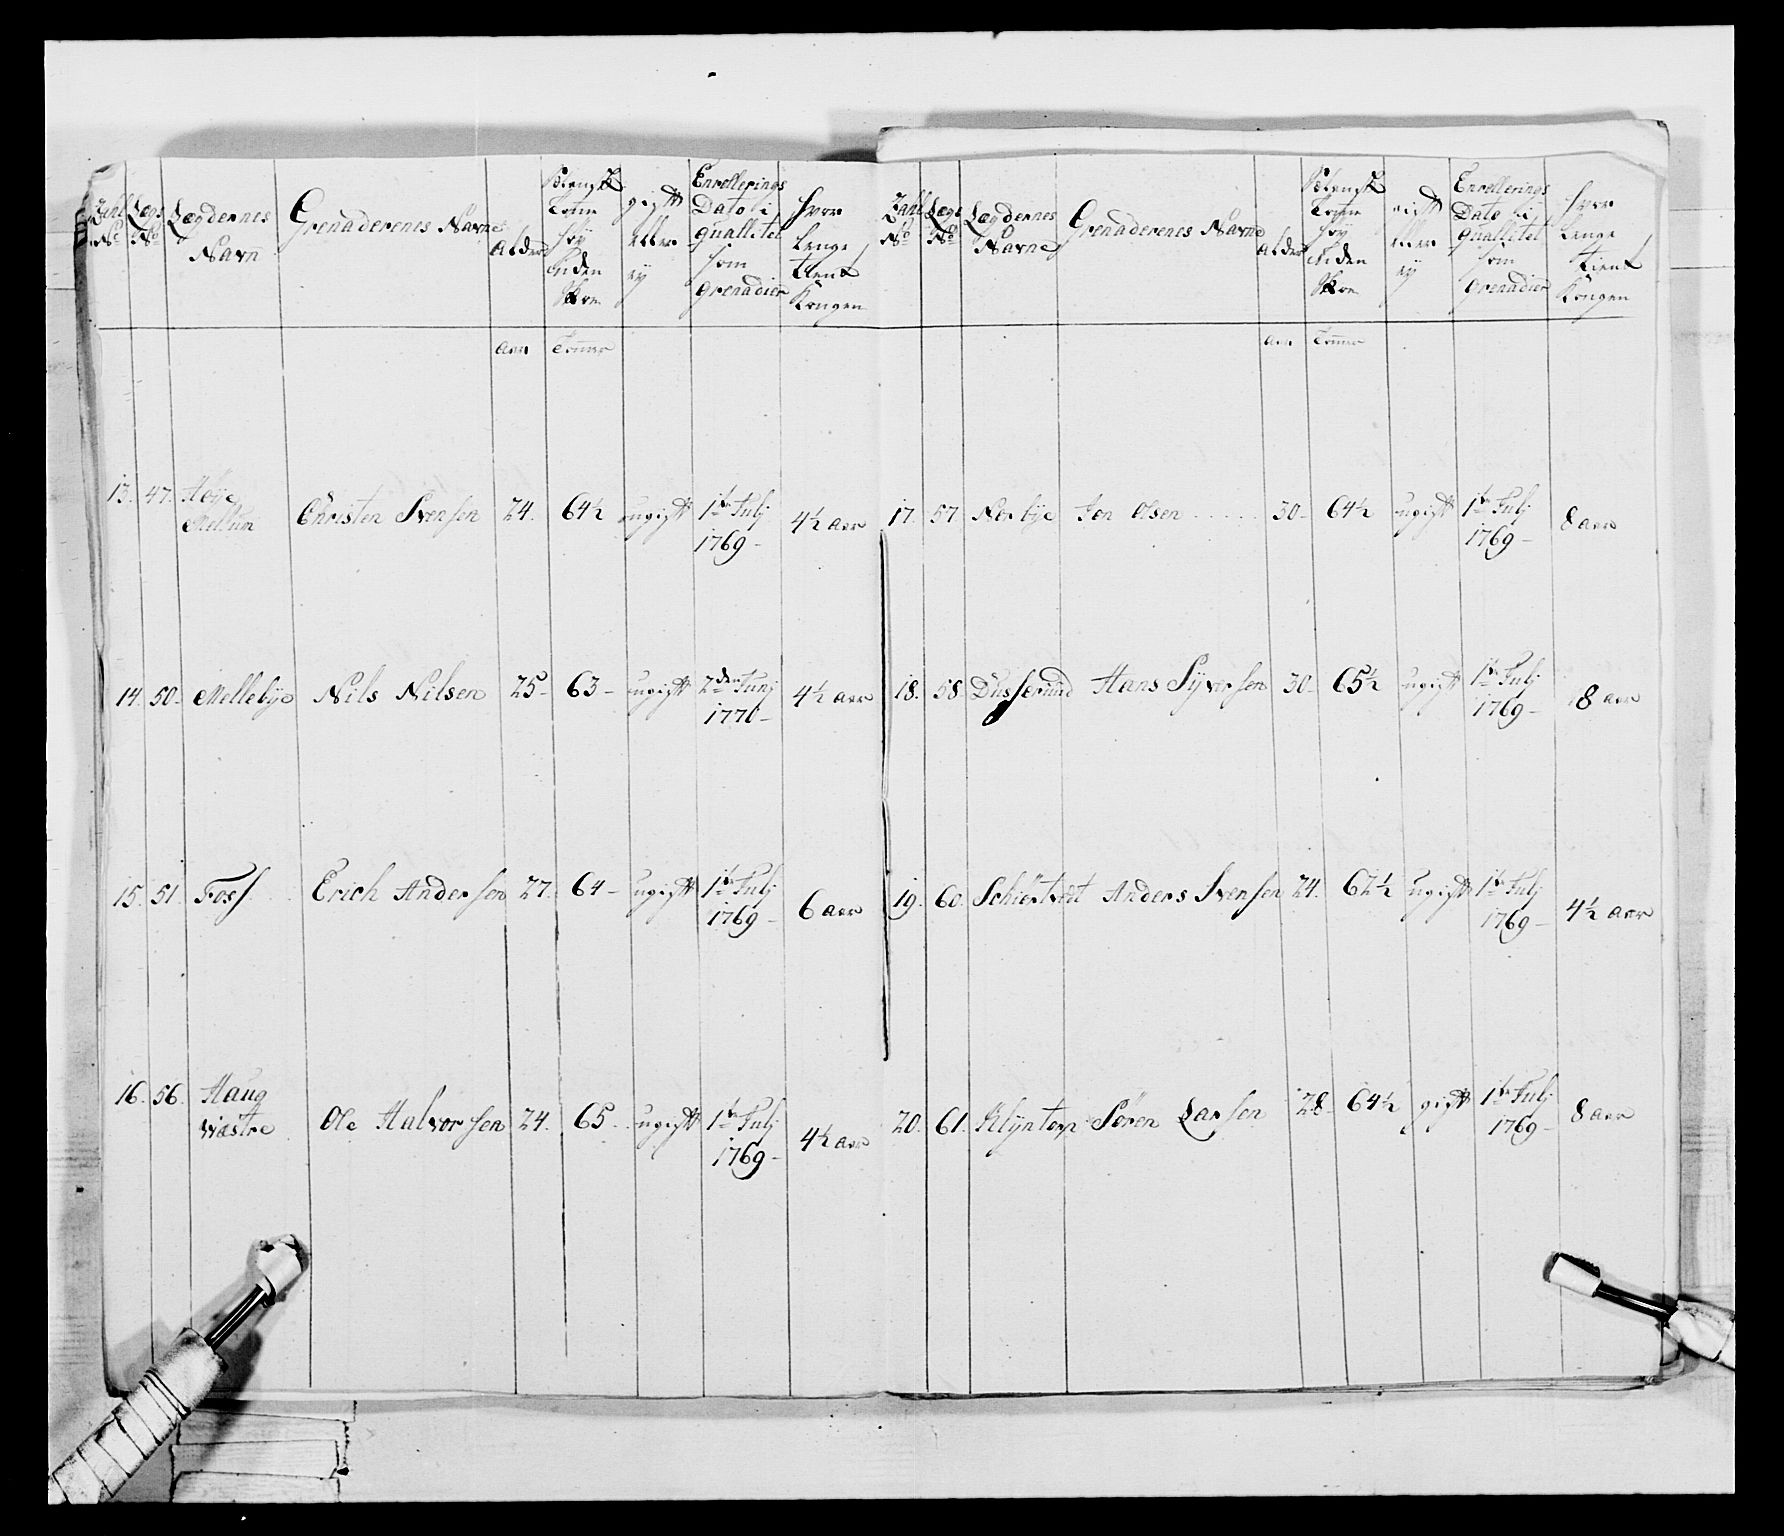 Lægs No
Lægdernes Navn
Grenaderenes Navne
Alder
gift eller ey
Enrollerings Dato i Qualitet som Grenadier
Hvor Lenge tient Kongen
Aar
Tommer
13. 47. Høye Mellum Christen Svensen 24. 64½ ugift 1te Julj 1769 4½ aar
14. 50. Mellebye Nils Nilsen 25 63 ugift 2den Junj 4½ aar
15. 51. Foss Erich Andersen 27. 64 ugift 1te Julj 1769 6 aar
16. 56. Haug Wæstre Ole Halvorsen 24. 65 ugift 1te Julj 1769 4½ aar
Lægs No
Lægdernes Navne
Grenaderenes Navne
Alder
gift eller ey
Enrollerings Dato i Qualitet som Grenadier
Hvor Lenge tient Kongen
Aar
Tommer
17. 57 Norbye Jon Olsen 30 64½ ugift 1te Julj 1769 8 aar
18. 58. Dusserund Hans Syversen 30 65½ ugift 1te Julj 1769 8 aar
19. 60. Anders Svensen 24. 62½ ugift 1te Julj 1769 4½ aar
20. 61. Klyntorp Søren Larsen 28 64½ gift 1te Julj 1769 8 aar